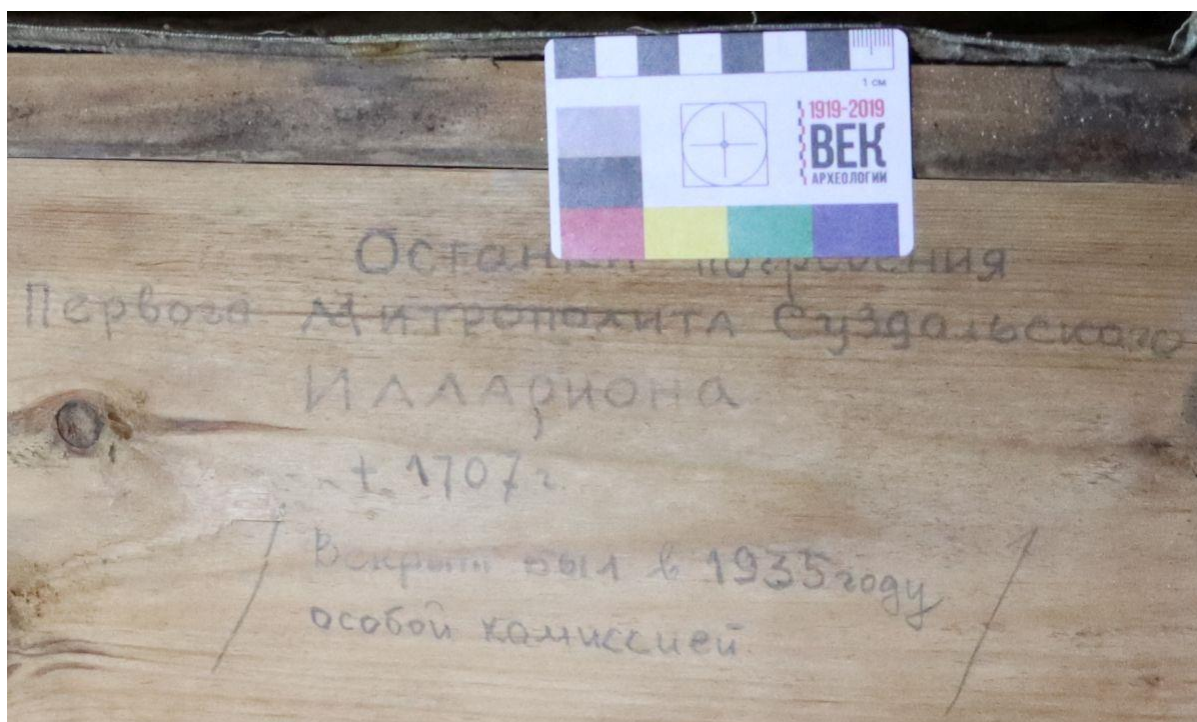 1 см
1919-2019
ВЕК
АРХЕОЛОГИИ
Останки погребения
Первого Митрополита Суздальского
Иллариона
† 1707 г.
Вскрыт был в 1935 году
особой комиссией